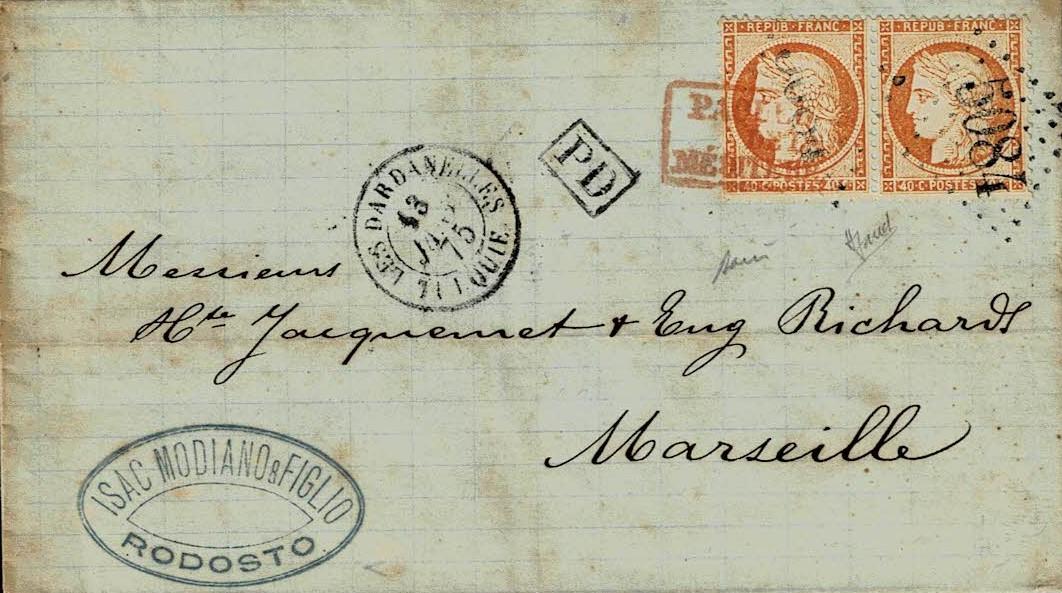 REPUB·FRANC·
REPUB·FRANC·
40·C·POSTES·40·C
40·C·POSTES·40·C
5084
PD
LES DARDANELLES
13
75
TURQUIE
Messieurs
Hte Jacquemet & Eug Richards
Marseille
ISAC MODIANO & FIGLIO
RODOSTO